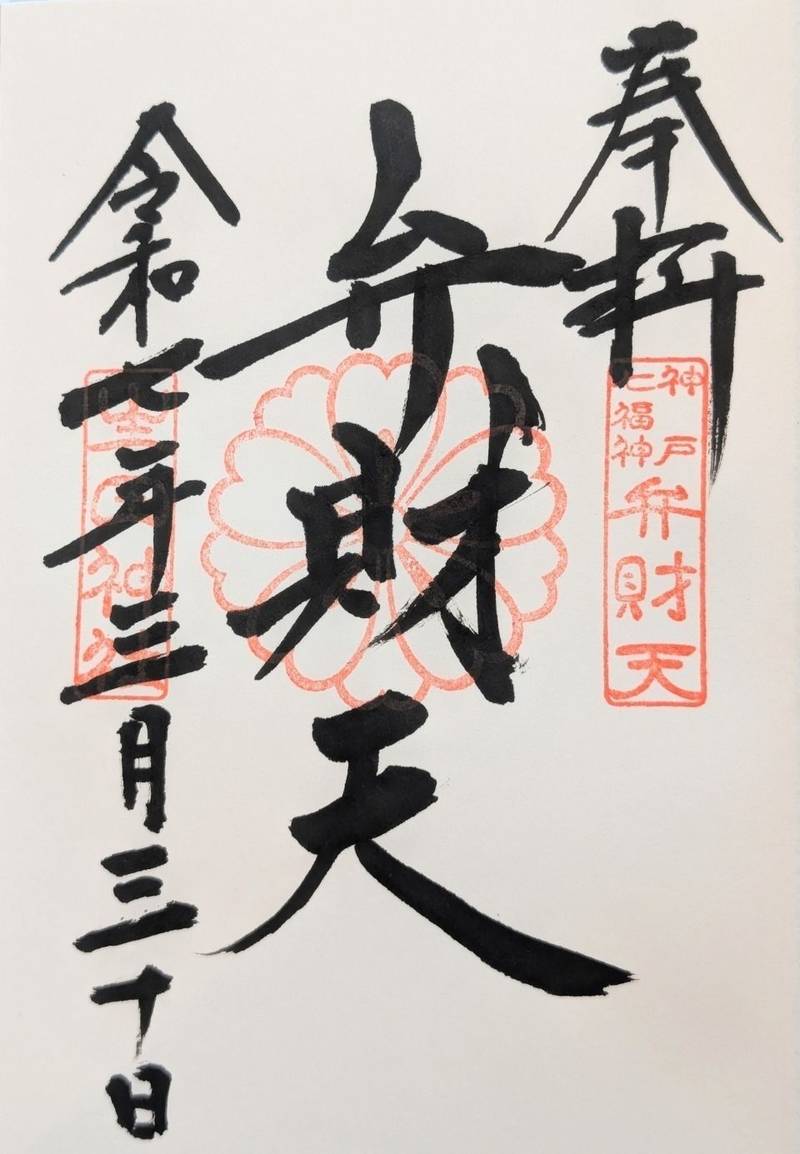 奉拝
神戸
七福神
弁財天
弁財天
令和七年三月三十日
生田神社